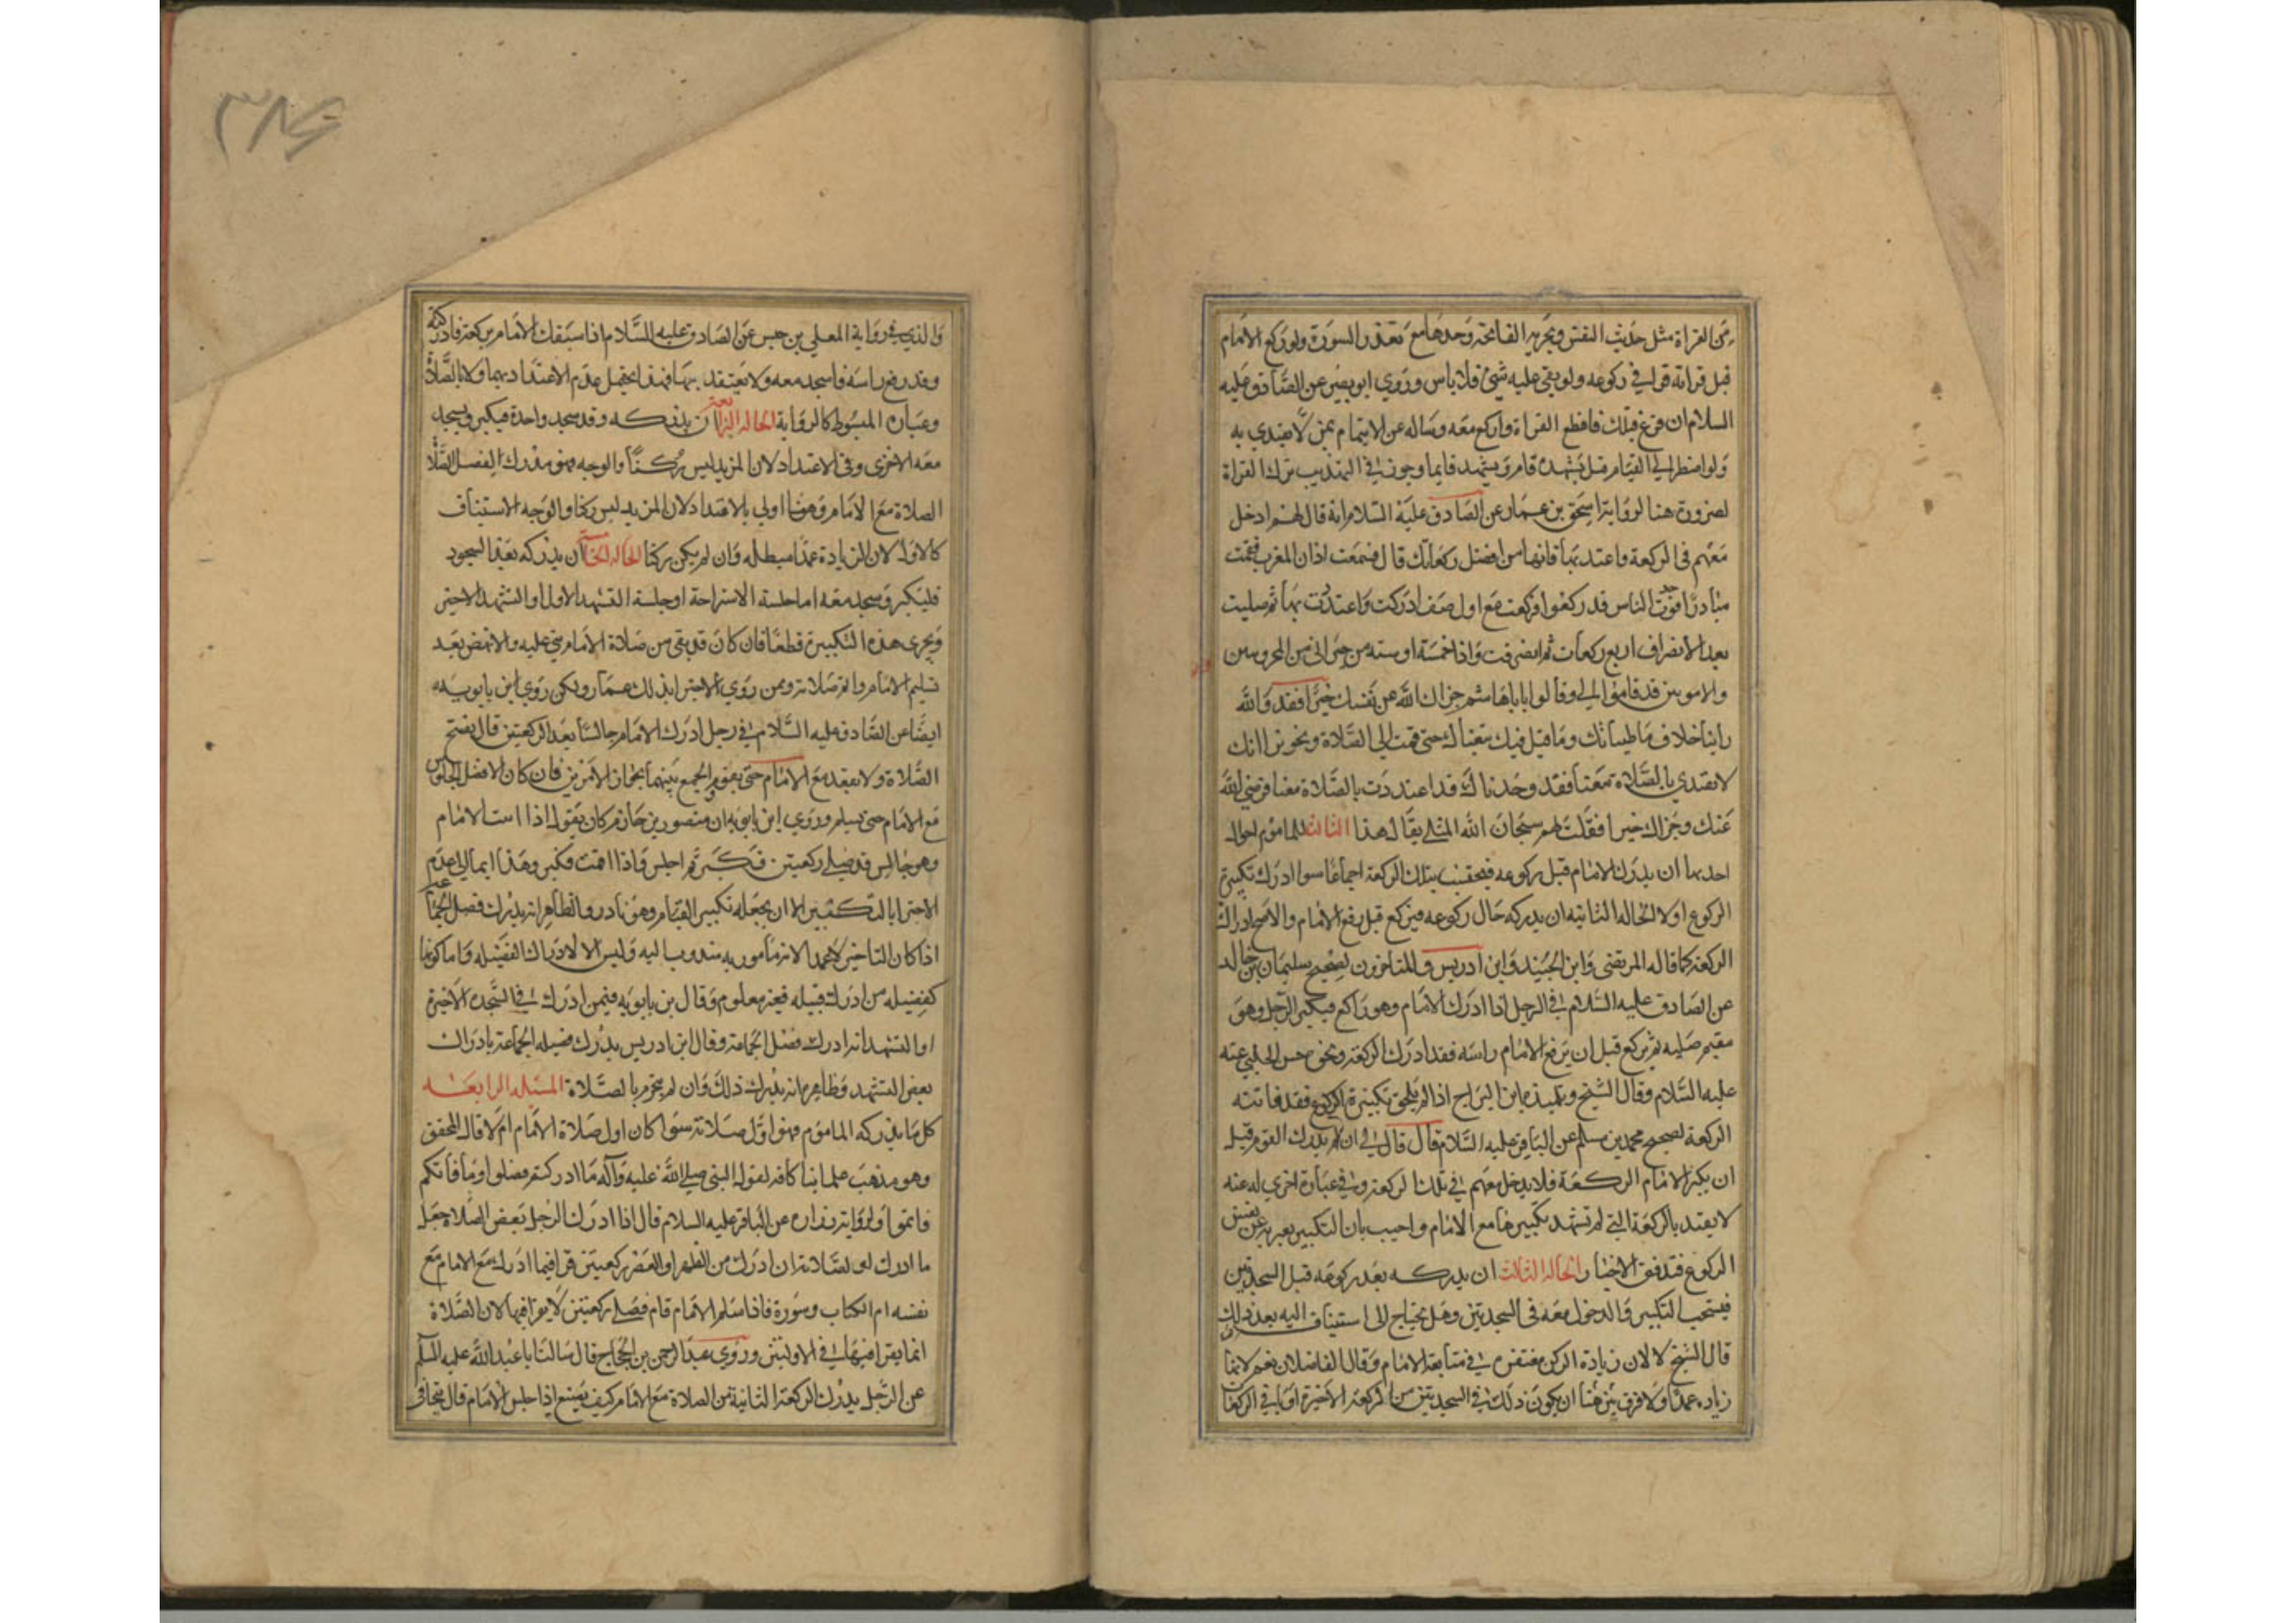 من القراة مثل حديث النفس ويجزيه الفاتحة وحدها مع تعذر السورة ولو ركع الامام
قبل قراته قرا في ركوعه ولو بقي عليه شئ فلا باس وروي ابو بصير عن الصادق عليه
السلام ان فرغ قبلك فاقطع القراة واركع معه وساله عن الايتمام بمن لا يقتدي به
ولو اضطر الي القيام قبل تشهده قام وتشهد قايما وجوز في التهذيب ترك القراة
لضرورة هنا لرواية اسحق بن عمار عن الصادق عليه السلام انه قال لهم ادخل
معهم في الركعة واعتد بها فانها من افضل ركعاتك قال فسمعت اذان المغرب فقمت
مبادرا فوجدت الناس قد ركعوا فركعت مع اول صف ادركت واعتددت بها ثم صليت
بعد الانصراف اربع ركعات ثم انصرفت واذا خمسة او ستة من جيراني من المخزوميين
والامويين قد قاموا الي وقالوا يا باهاشم جزاك الله عن نفسك خيرا فقد والله
راينا خلاف ما ظننا بك وما قيل فيك تبعناك حتى قمت الي الصلاة ونحن نرا انك
لا تقتدي بالصلاة معنا فقد وجدناك قد اعتددت بالصلاة معنا فرضي الله
عنك وجزاك خيرا فقلت لهم سبحان الله المثلي يقال هذا الثالثة للماموم احوال
احدها ان يدرك الامام قبل ركوعه فيحتسب بتلك الركعة اجماعا سوا ادرك تكبيرة
الركوع او لا الحاله الثانيه ان يدركه حال ركوعه فيركع قبل رفع الامام والاصح ادراك
الركعة كما قاله المرتضى وابن الجنيد وابن ادريس والمتاخرون لصحيح سليمان بن خالد
عن الصادق عليه السلام في الرجل اذا ادرك الامام وهو راكع فيكبر الرجل وهو
مقيم صلبه ثم ركع قبل ان يرفع الامام راسه فقد ادرك الركعة ونحوه حسن الحلبي عنه
عليه السلام وقال الشيخ وتلميذه ابن البراج اذا لم يلحق تكبيرة الركوع فقد فاتته
الركعة لصحيح محمد بن مسلم عن الباقر عليه السلام قال قال لي ان لم تدرك القوم قبل
ان يكبر الامام الركعة فلا يدخل معهم في تلك الركعة وفي عبارة اخري له عنه
لا يعتد بالركعة التي لم تشهد تكبيرها مع الامام واجيب بان التكبير يعبر به عن نفس
الركوع فتدفق الاخبار الحاله الثالثة ان يدركه بعد ركوعه قبل السجدتين
فيستحب التكبير والدخول معه في السجدتين وهل يحتاج الى استيناف النيه بعد ذلك
قال الشيخ لا لان زيادة الركن مغتفرة في متابعة الامام وقال الفاضلان نعم لانها
زياده عمدا ولا فرق بين هنا ان يكون ذلك في السجدتين من الركعة الاخيرة او باقي الركعات
٣٨٤
والذي في رواية المعلي بن خنيس عن الصادق عليه السلام اذا سبقك الامام بركعة فادركته
وقد رفع راسه فاسجد معه ولا تعتقد بها فهذا يحتمل عدم الاعتداد بهما ولا بالصلاة
وعبارة المبسوط كالرواية الحاله الرابعة ان يدركه وقد سجد واحدة فيكبر ويسجد
معه الاخري وفي الاعتداد لان المزيد ليس بركنا والوجه فهو مدرك الفضل الصلاة
الصلاة مع الامام وهنا اولي بالاقتداد لان المزيد ليس ركنا والوجه الاستيناف
كالاول لان الزيادة عمدا مبطله وان لم يكن ركنا الحاله الخامسة ان يدركه بعد السجود
فليكبر وسجد معه اما جلسة الاستراحة او جلسة التشهد الاول او التشهد الاخير
ويجزى هذه التكبيرة قطعا فان كان قد بقي من صلاة الامام بني عليه والا نهض بعد
تسليم الامام واتم صلاته وممن روي الاجتزا بذلك عمار ولكن روي ابن بابويه
ايضا عن الصادق عليه السلام في رجل ادرك الامام جالسا بعد الركعتين قال يفتتح
الصلاة ولا يقعد مع الامام حتى يقوم والجمع بينهما بجواز الامرين فان كان الافضل الجلوس
مع الامام حتى يسلم وروي ابن بابويه ان منصور بن حازم كان يقول اذا اتيت الامام
وهو جالس قد صلي ركعتين فكبر ثم اجلس فاذا قمت فكبر وهذا ايما الي عدم
الاجتزا بالتكبير الا ان يجعله تكبير القيام وهو نادر والظاهر انه يدرك فضل الجماعة
اذا كان التاخير لا عمدا لانه مأمور به مندوب اليه وليس الا لادراك الفضيله واما كونها
كفضيله من ادرك قبيله فغير معلوم وقال بن بابويه فيمن ادرك في السجده الاخيرة
او التشهد انه ادرك فضل الجماعة وقال ابن ادريس يدرك فضيله الجماعة بادراك
بعض التشهد وظاهره انه يدرك ذلك وان لم يتحرم بالصلاة المسئله الرابعة
كل ما يدركه الماموم فهو اول صلاته سوا كان اول صلاة الامام ام لا قاله المحقق
وهو مذهب علمائنا كافه لقوله النبي صلي الله عليه وآله ما ادركتم فصلوا وما فاتكم
فاتموا ولرواية زراره عن الباقر عليه السلام قال اذا ادرك الرجل بعض الصلاة جعل
ما ادرك اول صلاته ان ادرك من الظهر او العصر ركعتين قرا فيما ادرك مع الامام مع
نفسه ام الكتاب وسورة فاذا سلم الامام قام فصلي ركعتين لا يقرا فيها لان الصلاة
انما يقرا فيها في الاوليتين وروي عبد الرحمن بن الحجاج قال سالت ابا عبد الله عليه السلم
عن الرجل يدرك الركعة الثانية من الصلاة مع الامام كيف يصنع اذا جلس الامام قال يتجافى